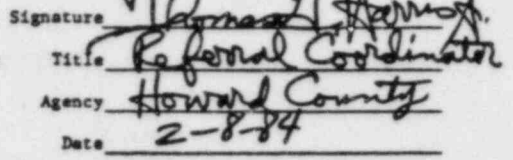 Signature Thomas L. Harris Jr.
Title Referral Coordinator
Agency Howard County
Date 2-8-84